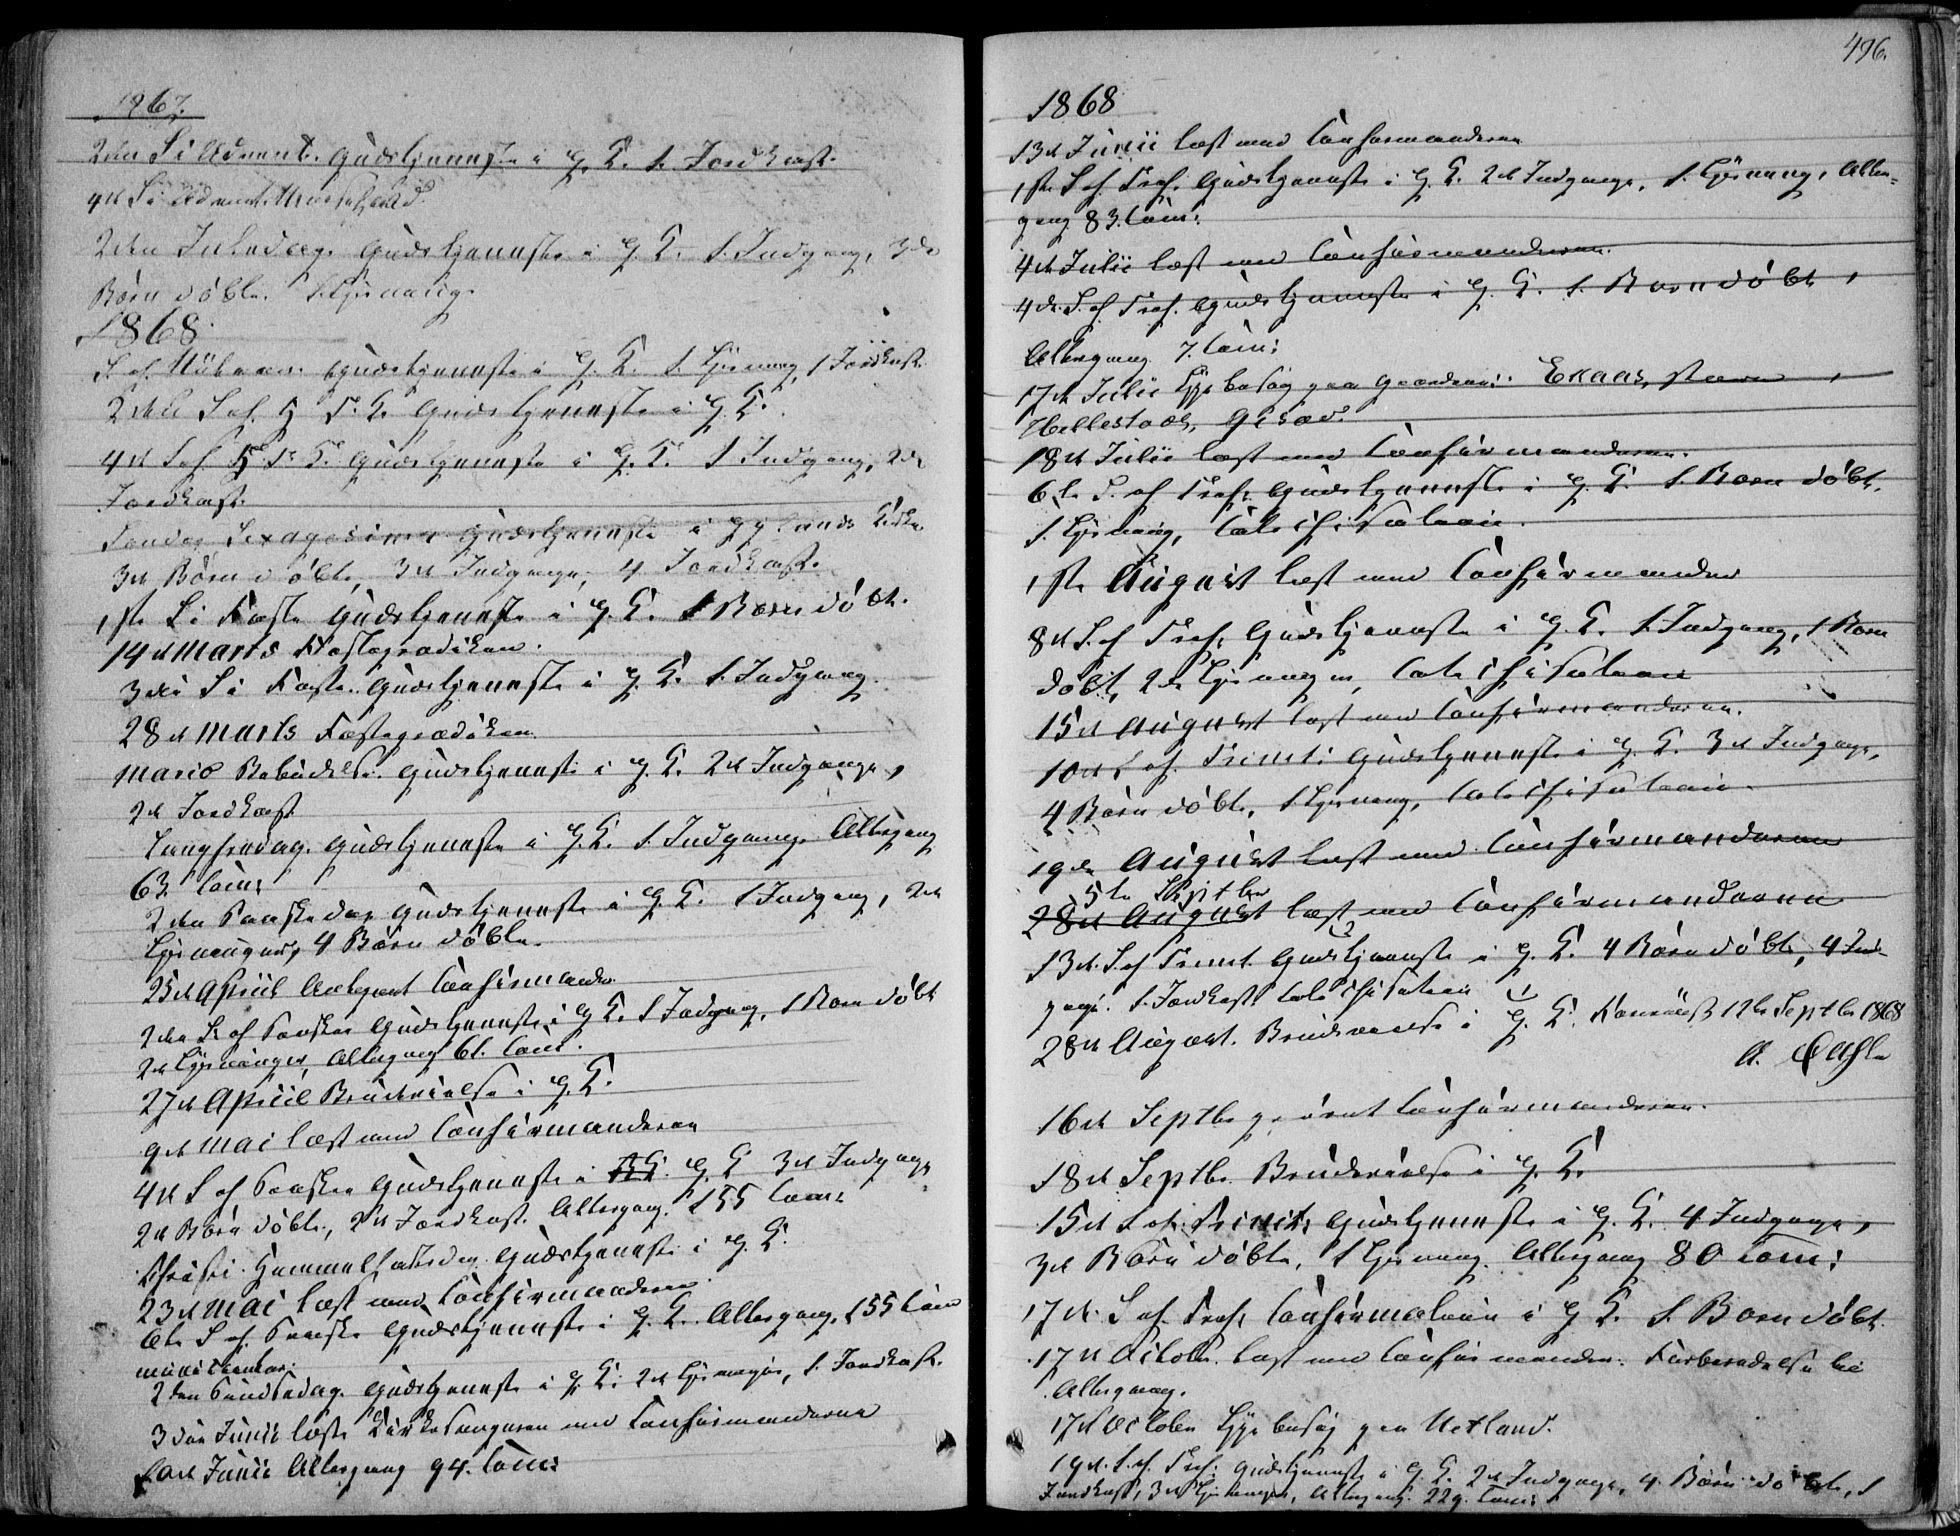 1867.
2den S i Advent. Gudstjeneste i G. K. 1. Jordkast.
4de S i Advent. Messefald.
2den Juledag. Gudstjeneste i G. K. 1. Indgang, 3de
Børn døbte. 1 Lysning.
1868.
S. ef. Nytaar. Gudstjeneste i G. K. 1. Lysning, 1 Jordkast.
2den S ef. H. 3. K. Gudstjeneste i G. K.
4de S ef. H. 3. K. Gudstjeneste i G. K. 1 Indgang, 2de
Jordkast.
Søndag Sexagesima Gudstjeneste i Gylands Kirke
3de Børn døbte, 3de Indgange, 4 Jordkast.
1ste S i Faste Gudstjeneste i G. K. 1 Barn døbt.
14de Marts Fasteprædiken.
3die S i Faste. Gudstjeneste i G. K. 1. Indgang.
28de Marts Fasteprædiken.
Mariæ Bebudelse. Gudstjeneste i G. K. 2de Indgange,
2de Jordkast
Langfredag. Gudstjeneste i G. K. 1. Indgang. Altergang
63 Com:
2den Paaskedag Gudstjeneste i G. K. 1 Indgang, 2de
Lysninger, 4 Børn døbte.
25de April Antegnet Confirmander
2den S. ef Paaske Gudstjeneste i G. K. 1 Indgang, 1 Barn døbt
2de Lysninger, Altergang 61. Com:
27de April Brudevielse i G. K.
9de Mai læst med Confirmanderne
4de S ef Paaske Gudstjeneste i G. K. 3de Indgange
2de Børn døbte, 2de Jordkast. Altergang. 155 Com:
Christi Himmelfartsdag Gudstjeneste i G. K.
23de Mai læst med Confirmanderne.
6te S ef. Paaske Gudstjeneste i G. K. Altergang. 155 Com
municanter.
2den Pindsedag. Gudstjeneste i G. K. 2de Lysninger, 1. Jordkast.
3die Junii læste Kirkesangeren med Confirmanderne
Junii Altergang 94. Com:
496.
1868
13de Junii læst med Confirmanderne
1ste S ef. Tref. Gudstjeneste i G. K. 2de Indgange, 1. Lysning, Alter-
gang 83. Com:
4de Julii læst med Confirmanderne.
4de S. ef Tref. Gudstjeneste i G. K. 1. Barn døbt,
Altergang 7. Com:
17de Julii Sygebesøg paa Gaardene: Ekaas,
Hellestad,
18de Julii læst med Confirmanderne.
6te S. ef Tref. Gudstjeneste i G. K. 1. Barn døbt,
1. Lysning, Catechisation.
1ste August læst med Confirmander
8de S. ef Tref. Gudstjeneste i G. K. 1. Indgang, 1 Barn
døbt, 2de Lysninger, Catechisation
15de August læst med Confirmanderne.
10de S ef. Trinit: Gudstjeneste i G. K. 3de Indgange,
4 Børn døbte, 1 Lysning, Catechisation.
19de August læst med Confirmanderne
5te Septbr
28de August læst med Confirmanderne
13de S. ef Trinit. Gudstjeneste i G. K. 4 Børn døbte, 4 Ind-
gange. 1. Jordkast. Catechisation
28de August. Brudevielse i G. K. 12te Septbr 1868
A.
16de Septbr prøvet Confirmanderne.
18de Septbr. Brudevielse i G. K.
15de S ef. Trinit. Gudstjeneste i G. K. 4 Indgange,
3de Børn døbte, 1 Lysning. Altergang 80 Com:
17de S ef. Tref. Confirmation i G K. 1. Barn døbt.
17de October læst med Confirmander. Forberedelse til
Altergang.
17de October Sygebesøg paa Netland.
19de S. ef. Tref. Gudstjeneste i G. K. 2de Indgange, 4 Børn døbte, 1
Jordkast, 3de Lysninger, Altergang. 229. Com: